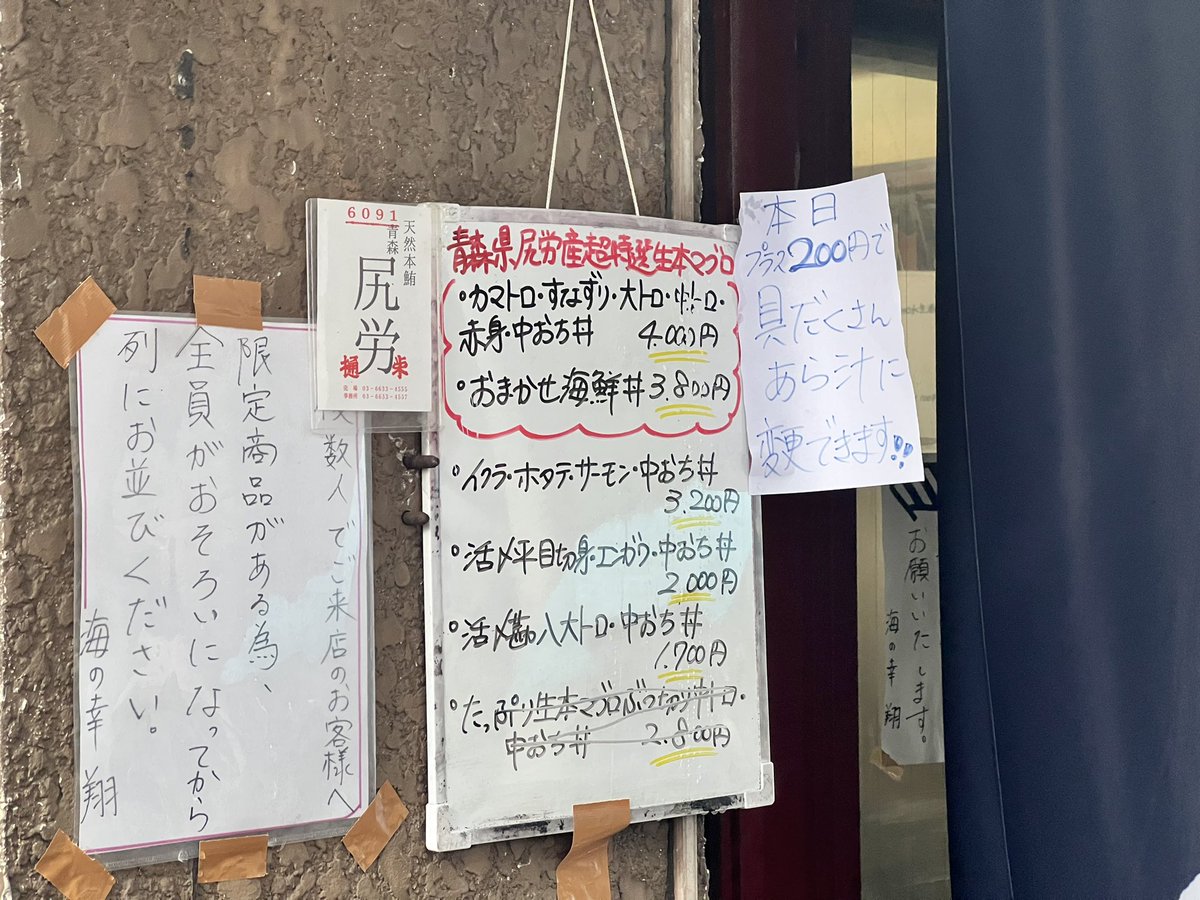 複数人でご来店のお客様へ
限定商品がある為、
全員がおそろいになってから
列にお並びください。
海の幸 翔
6091
天然本鮪
青森
尻労
樋栄
売場 03-6633-4555
事務所 03-6633-4557
青森県尻労産超特選生本マグロ
・カマトロ・すなずり・大トロ・中トロ・
赤身・中おち丼 4.000円
・おまかせ海鮮丼 3.800円
・イクラ・ホタテ・サーモン・中おち丼
3.200円
・活〆平目切身・エンガワ・中おち丼
2.000円
・活〆勘八大トロ・中おち丼
1.700円
・たっぷり生本マグロぶつ切り・中トロ・
中おち丼 2.800円
本日
プラス200円で
具だくさん
あら汁に
変更できます!!
お願いいたします。
海の幸 翔